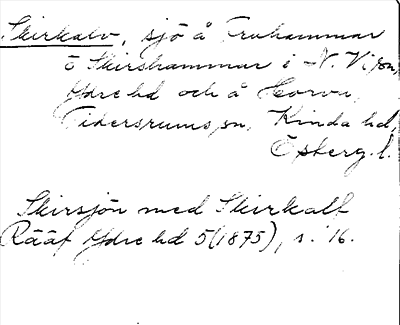 Skirkalv, sjö å Fruhammar
o Skirshammar i N. Vi sn,
Ydre hd och å Horva,
Tidersrums sn, Kinda hd,
Östergl.
Skirsjön med Skirkalf
Rääf Ydre hd 5(1875), s. 16.